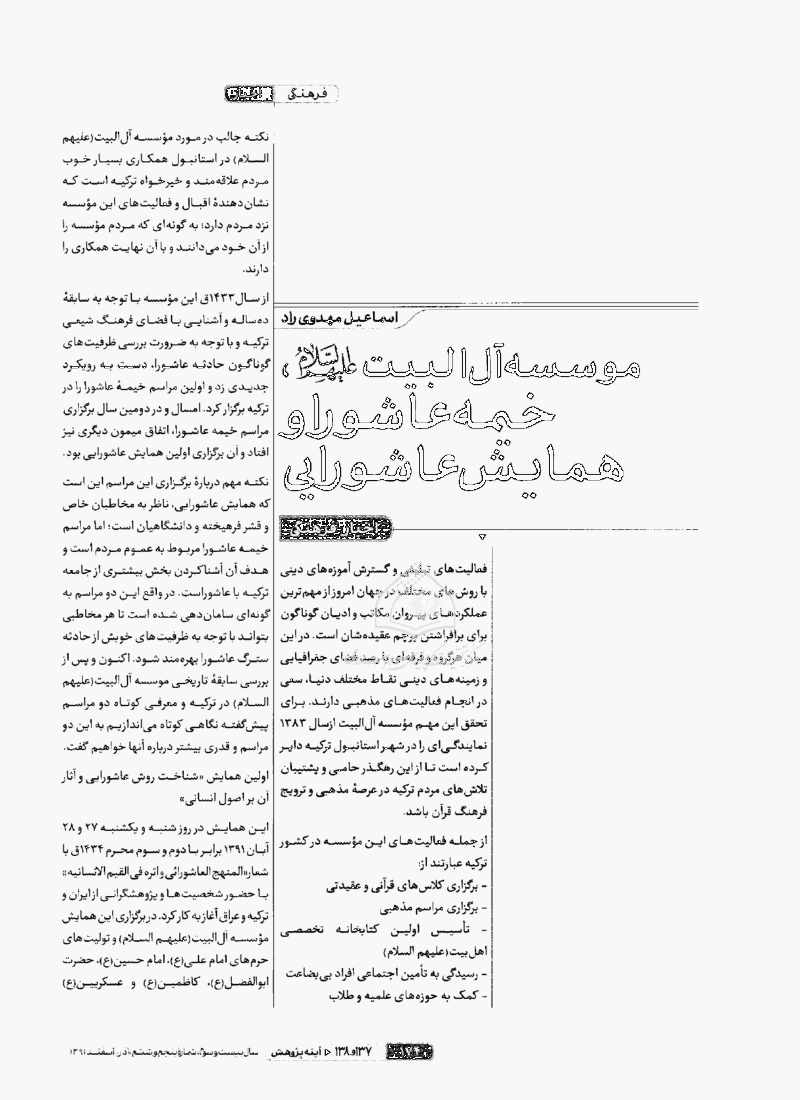 فرهنگی
اسماعیل مهدوی راد
موسسه آل البیت علیهم السلام،
خیمه عاشورا و
همایش عاشورایی
فعالیت‌های تبلیغی و گسترش آموزه‌های دینی
با روش‌های مختلف در جهان امروز از مهم‌ترین
عملکردهای پیروان مکاتب و ادیان گوناگون
برای برافراشتن پرچم عقیده‌شان است. در این
میان هر گروه و فرقه‌ای با رصد فضای جغرافیایی
و زمینه‌های دینی نقاط مختلف دنیا، سعی
در انجام فعالیت‌های مذهبی دارند. برای
تحقق این مهم مؤسسه آل البیت از سال ۱۳۸۳
نمایندگی‌ای را در شهر استانبول ترکیه دایر
کرده است تا از این رهگذر حامی و پشتیبان
تلاش‌های مردم ترکیه در عرصهٔ مذهبی و ترویج
فرهنگ قرآن باشد.
از جمله فعالیت‌های این مؤسسه در کشور
ترکیه عبارتند از:
- برگزاری کلاس‌های قرآنی و عقیدتی
- برگزاری مراسم مذهبی
- تأسیس اولین کتابخانه تخصصی
اهل بیت(علیهم السلام)
- رسیدگی به تأمین اجتماعی افراد بی‌بضاعت
- کمک به حوزه‌های علمیه و طلاب
نکته جالب در مورد مؤسسه آل البیت(علیهم
السلام) در استانبول همکاری بسیار خوب
مردم علاقه‌مند و خیرخواه ترکیه است که
نشان‌دهندهٔ اقبال و فعالیت‌های این مؤسسه
نزد مردم دارد؛ به گونه‌ای که مردم مؤسسه را
از آن خود می‌دانند و با آن نهایت همکاری را
دارند.
از سال ۱۴۳۳ق این مؤسسه با توجه به سابقهٔ
ده‌ساله و آشنایی با فضای فرهنگ شیعی
ترکیه و با توجه به ضرورت بررسی ظرفیت‌های
گوناگون حادثه عاشورا، دست به رویکرد
جدیدی زد و اولین مراسم خیمهٔ عاشورا را در
ترکیه برگزار کرد. امسال و در دومین سال برگزاری
مراسم خیمه عاشورا، اتفاق میمون دیگری نیز
افتاد و آن برگزاری اولین همایش عاشورایی بود.
نکته مهم دربارهٔ برگزاری این مراسم این است
که همایش عاشورایی، ناظر به مخاطبان خاص
و قشر فرهیخته و دانشگاهیان است؛ اما مراسم
خیمه عاشورا مربوط به عموم مردم است و
هدف آن آشنا کردن بخش بیشتری از جامعه
ترکیه با عاشوراست. در واقع این دو مراسم به
گونه‌ای سامان‌دهی شده است تا هر مخاطبی
بتواند با توجه به ظرفیت‌های خویش از حادثه
سترگ عاشورا بهره‌مند شود. اکنون و پس از
بررسی سابقهٔ تاریخی موسسه آل البیت(علیهم
السلام) در ترکیه و معرفی کوتاه دو مراسم
پیش‌گفته نگاهی کوتاه می‌اندازیم به این دو
مراسم و قدری بیشتر درباره آنها خواهیم گفت.
اولین همایش «شناخت روش عاشورایی و آثار
آن بر اصول انسانی»
این همایش در روز شنبه و یکشنبه ۲۷ و ۲۸
آبان ۱۳۹۱ برابر با دوم و سوم محرم ۱۴۳۴ق با
شعار «المنهج العاشورائی و اثره فی القیم الانسانیه»
با حضور شخصیت‌ها و پژوهشگرانی از ایران و
ترکیه و عراق آغاز به کار کرد. در برگزاری این همایش
مؤسسه آل البیت(علیهم السلام) و تولیت‌های
حرم‌های امام علی(ع)، امام حسین(ع)، حضرت
ابوالفضل(ع)، کاظمین(ع) و عسکریین(ع)
۱۳۷و۱۳۸ آینه پژوهش سال بیست و سوم، شماره پنجم و ششم، آذر ـ اسفند ۱۳۹۱